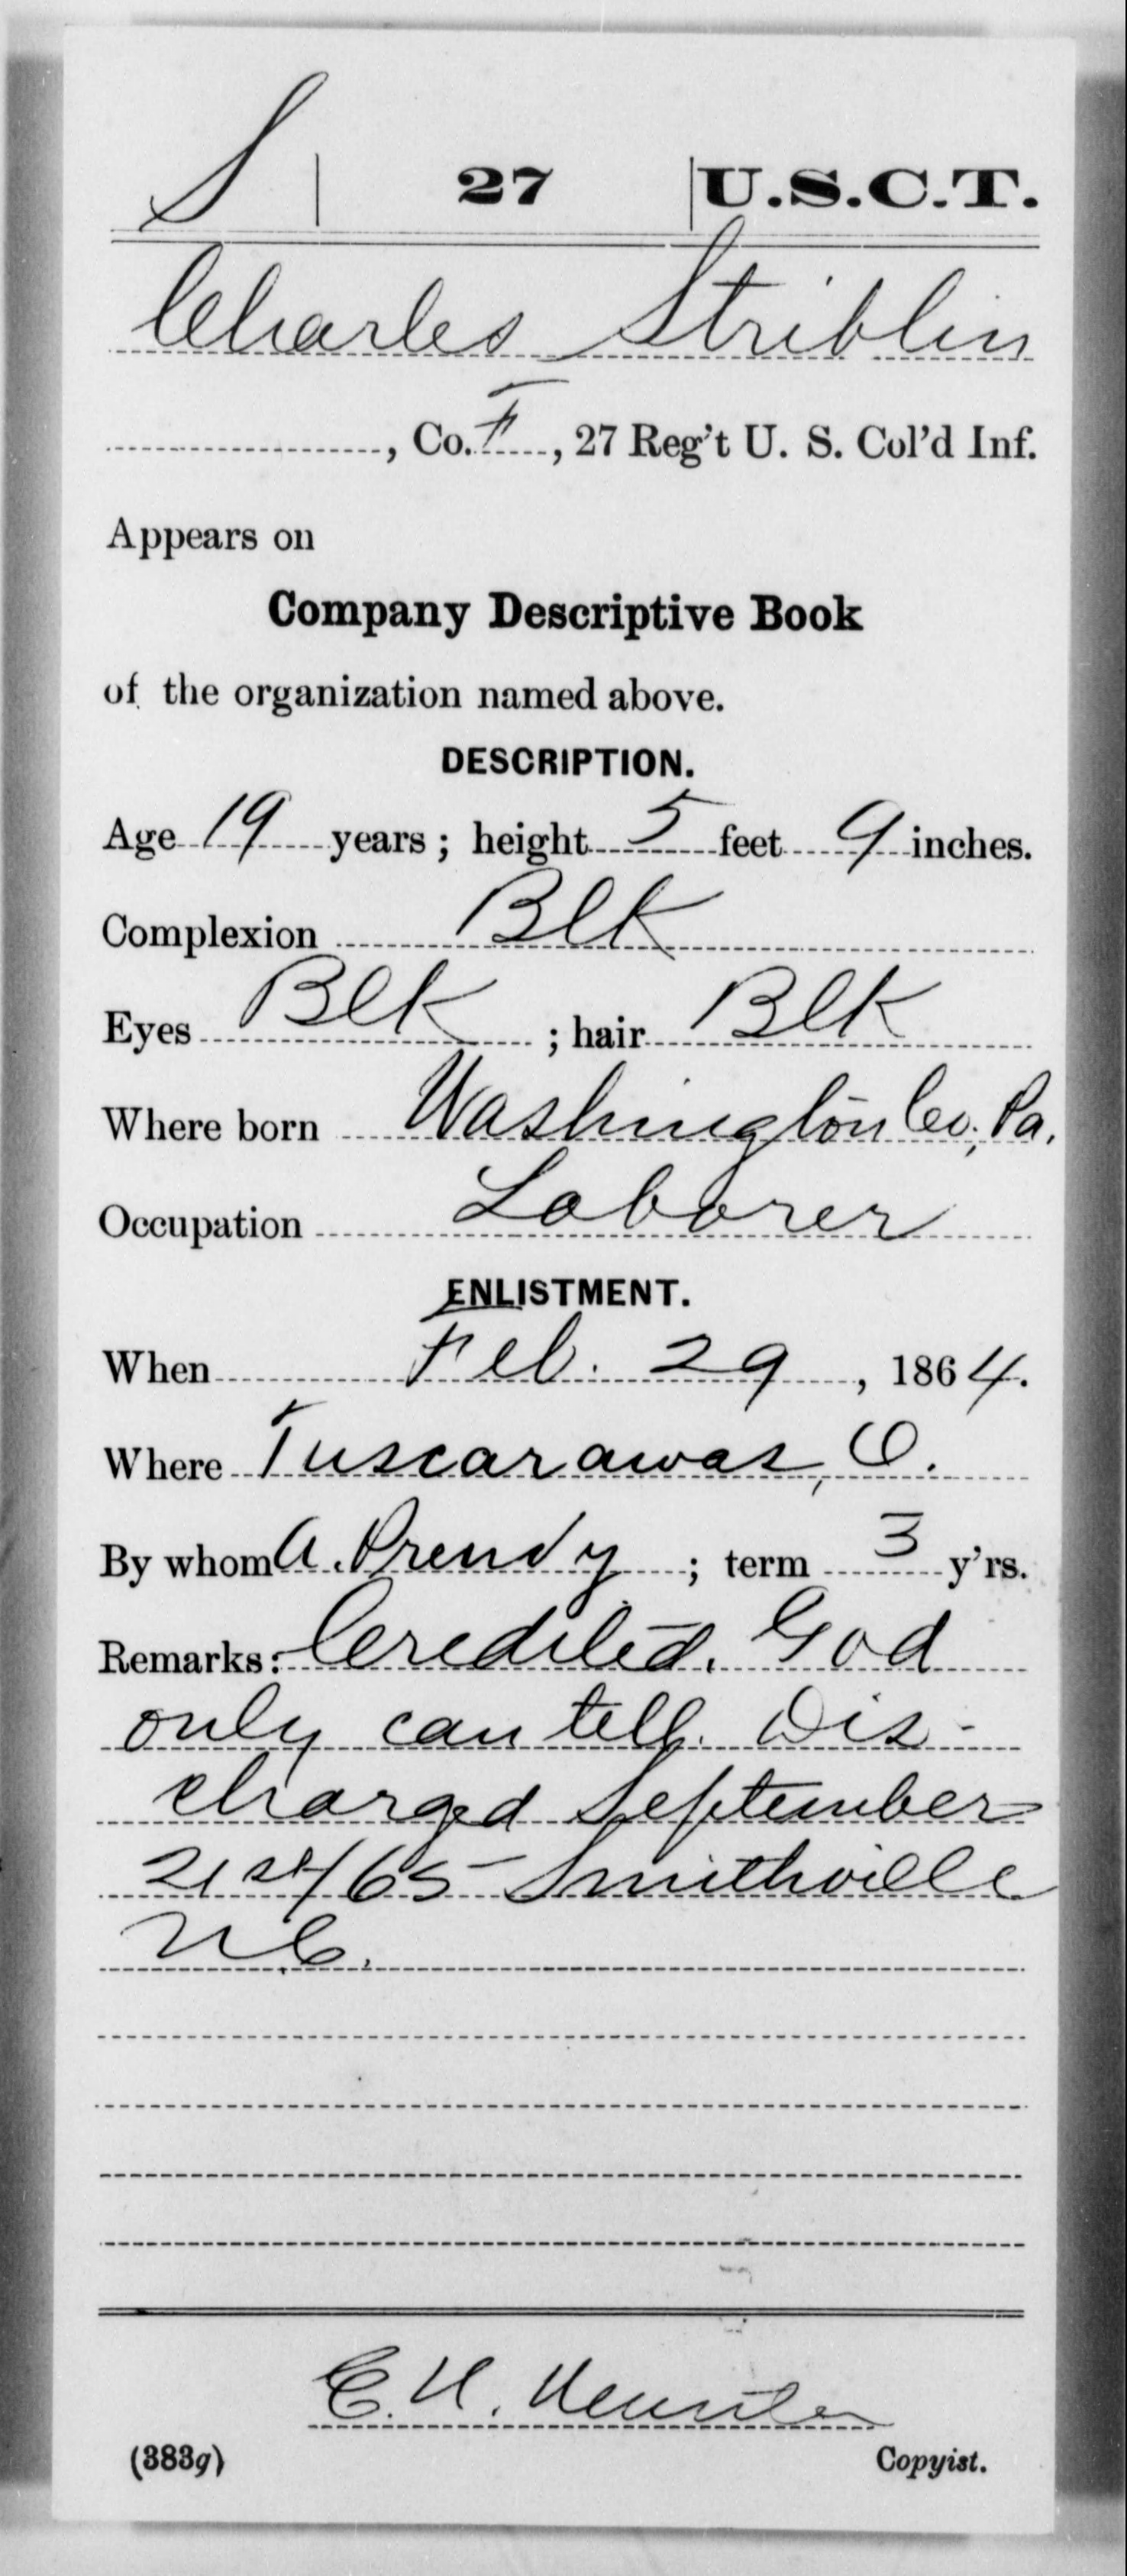 S | 27 | U.S.C.T.
Charles Striblin
, Co. F, 27 Reg't U. S. Col'd Inf.
Appears on
Company Descriptive Book
of the organization named above.
DESCRIPTION.
Age 19 years; height 5 feet 9 inches.
Complexion Blk
Eyes Blk; hair Blk
Where born Washington Co., Pa.
Occupation Laborer
ENLISTMENT.
When Feb. 29, 1864.
Where Tuscarawas, O.
By whom A. Prendy; term 3 y'rs.
Remarks: Credited. God
only can tell. Dis-
charged September
21st/65 Smithville
N.C.
C. H.
(383g) Copyist.